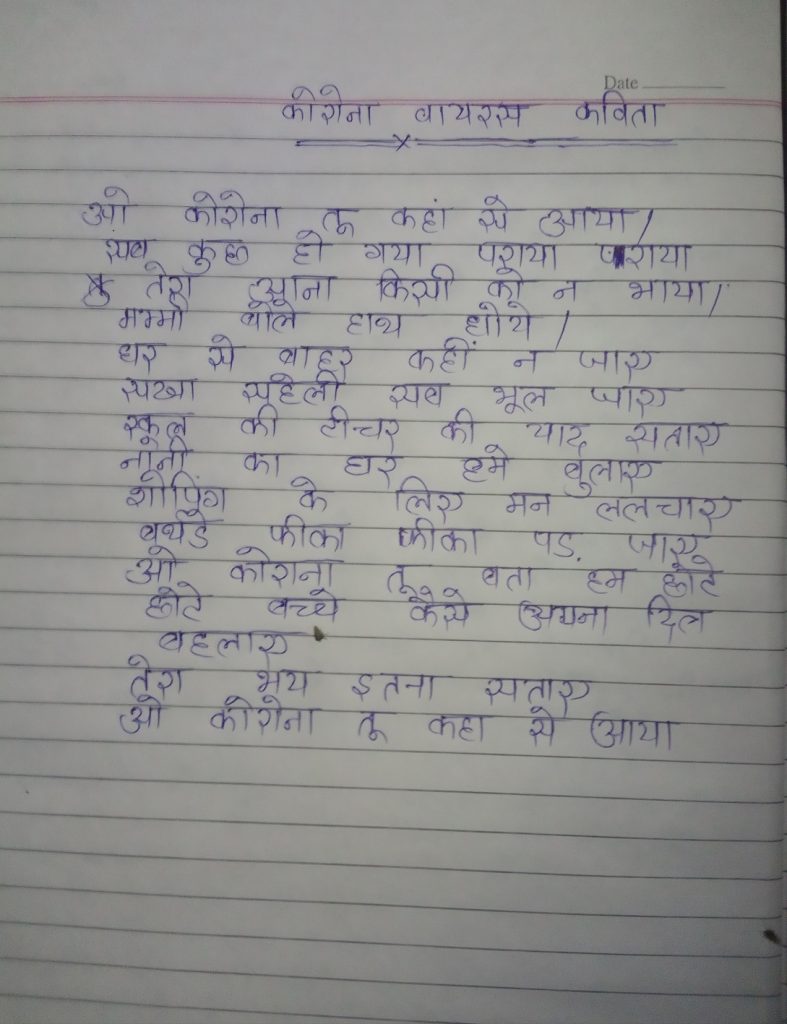 Date
कोरोना वायरस कविता
ओ कोरोना तू कहां से आया/
सब कुछ हो गया पराया पराया
तेरा आना किसी को न भाया/
मम्मी बोले हाथ धोये/
घर से बाहर कहीं न जाए
सखा सहेली सब भूल जाए
स्कूल की टीचर की याद सताए
नानी का घर हमे बुलाए
शोपिंग के लिए मन ललचाए
बर्थडे फीका फीका पड़ जाए
ओ कोरोना तू बता हम छोटे
छोटे बच्चे कैसे अपना दिल
बहलाए
तेरा भय इतना सताए
ओ कोरोना तू कहा से आया